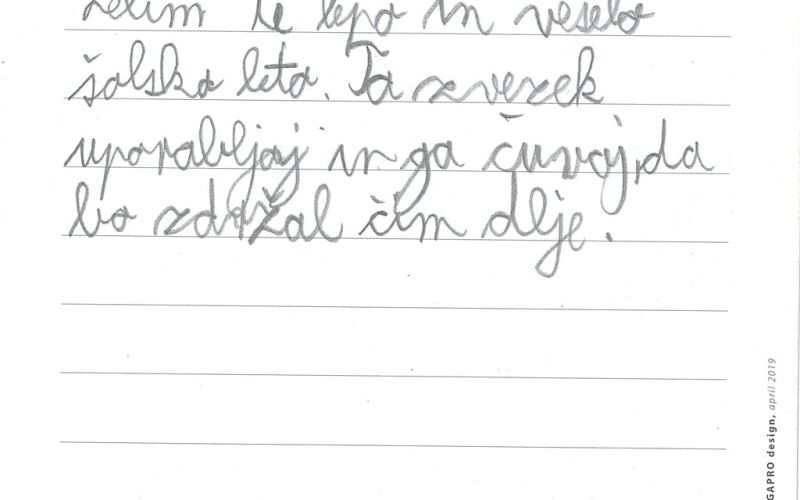 Želim te lepo in veselo
šolsko leto. Ta zvezek
uporabljaj in ga čuvaj, da
bo zdržal čim dlje.
GAPRO design, april 2019